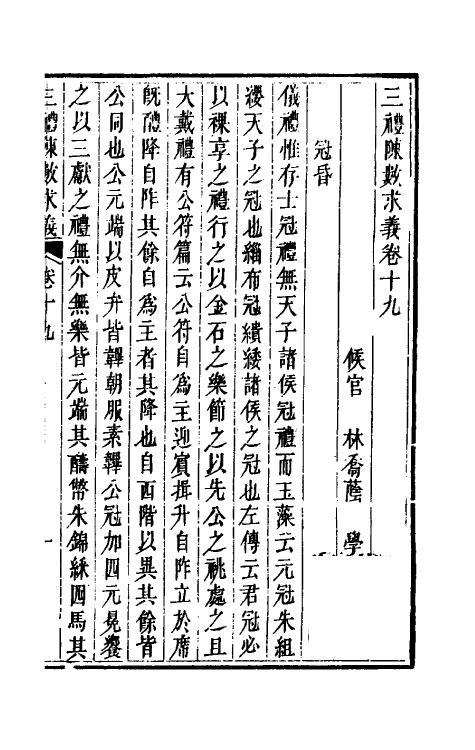 三禮陳數求義卷十九
候官　林喬蔭　學
冠昏
儀禮惟存士冠禮無天子諸侯冠禮而玉藻云元冠朱組
纓天子之冠也緇布冠繢緌諸侯之冠也左傳云君冠必
以裸享之禮行之以金石之樂節之以先公之祧處之且
大戴禮有公符篇云公符自為主迎賓揖升自阼立於席
旣醴降自阼其餘自為主者其降也自西階以異其餘皆
公同也公元端以皮弁皆韠朝服素韠公冠加四元冕饗
之以三獻之禮無介無樂皆元端其醻幣朱錦綵四馬其
三禮陳數求義　卷十九　一